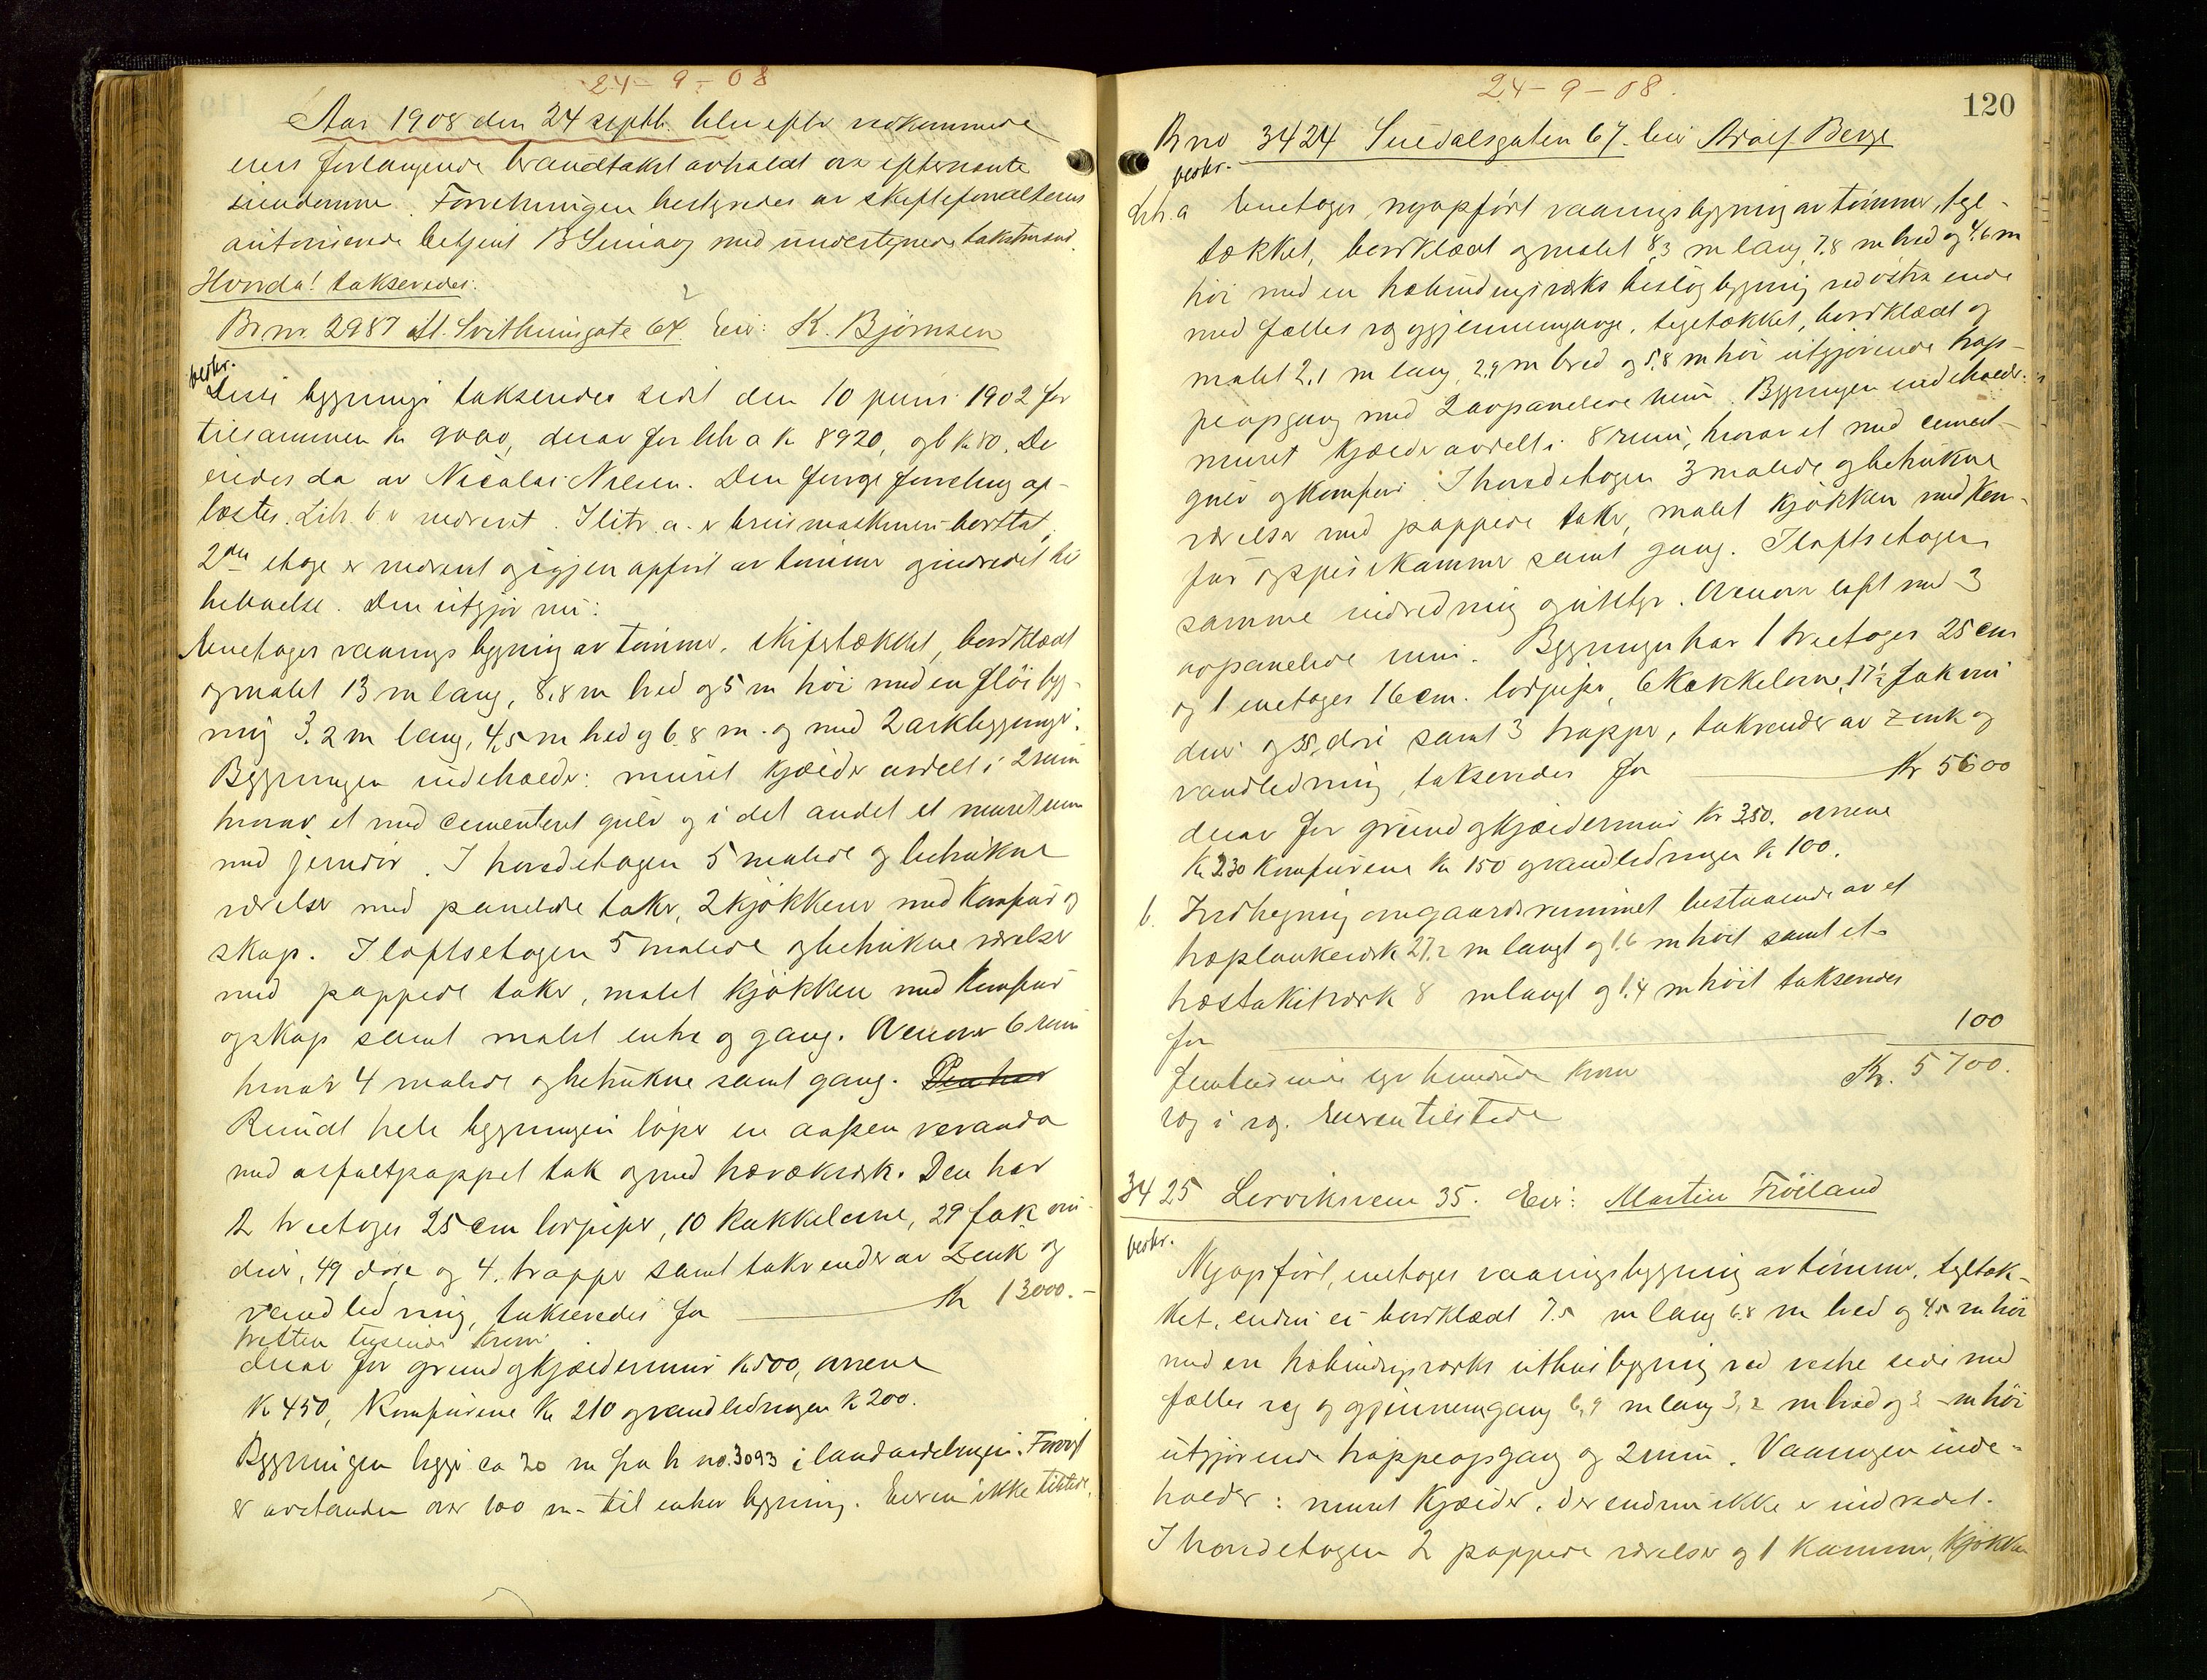 24-9-08
Aar 1908 den 24 septb. blev efter vedkommende
eiers forlangende brandtakst avholdt over efternævnte
eiendomme. Forretningen bestyredes av skifteforvalterens
autoriserede betjent med undertegnede takstmænd.
Hvorda! takseredes:
Br.nr. 2987 St. Svithunsgate 64. Eier: K. Bjørnsen
beskr.
Disse bygninger takseredes sidst den 10 juni 1902 for
tilsammen kr 9000, derav for litr a kr 8920, og b kr 80. De
eiedes da av Nicolai Nilsen. Den forrige forretning op-
læstes. Litr. b er nedrevet. I litr. a. er bruismaskinen borttat,
2den etage er nedrevet og igjen opført av tømmer og indredet til
beboelse. Den utgjør nu:
Enetages vaaningsbygning av tømmer, skifertækket, bordklædt
og malet 13 m lang, 8,8 m bred og 5 m høi med en fløibyg-
ning 3.2 m lang, 4,5 m bred og 6.8 m. og med 2 arkbygninger.
Bygningen indeholder: muret kjælder avdelt i 2 rum
hvorav et med cementeret gulv og i det andet et muret rum
med jerndør. I hovedetagen 5 malede og betrukne
værelser med panelede taker, 2 kjøkkener med komfur og
skap. I loftsetagen 5 malede og betrukne værelser
med pappede taker, malet kjøkken med komfur
og skap samt malet entre og gang. Ovenover 6 rum
hvorav 4 malede og betrukne samt gang. Den har
Rundt hele bygningen løper en aapen veranda
med asfaltpappet tak og med trærækverk. Den har
2 treetages 25 cm lodpiper, 10 kakkelovne, 29 fak vin-
duer, 49 døre og 4 trapper samt takrender av zink og
vandledning, takseredes for kr 13000.-
tretten tusinde kroner
derav for grund og kjældermur kr 500, ovnene
kr 450, komfurene kr 210 og vandledningen kr 200.
Bygningen ligger ca 20 m fra br no. 3093 i landavdelingen. Forøvrigt
er avstanden over 100 m. til enhver bygning. Eieren ikke tilstede.
24-9-08.
120
Br no 3424 Suedalsgaten 67. Eier Adolf Berge
beskr.
Litr. a Enetages, nyopført vaaningsbygning av tømmer, tegl-
tækket, bordklædt og malet 8,3 m lang, 7.8 m bred og 4,6 m
høi med en træbindingsværks bislagbygning ved østre ende
med fælles væg og gjennemgange, tegltækket, bordklædt og
malet 2.1 m lang, 2.9 m bred og 5.8 m høi utgjørende trap-
peopgang med 2 avpanelede rum. Bygningen indeholder:
muret kjælder avdelt i 8 rum, hvorav et med cement-
gulv og komfur. I hovedetagen 3 malede og betrukne
værelser med pappede taker, malet kjøkken med kom-
fur og spiskammer samt gang. I loftsetagen
samme indredning og utstyr. Ovenover loft med 3
avpanelede rum. Bygningen har 1 treetages 25 cm
og 1 enetages 16 cm. lodpiper, 6 kakkelovne, 17½ fak vin
duer og 35 døre samt 3 trapper, takrender av zink og
vandledning, takseredes for Kr 5600
derav for grund og kjældermur kr 350. ovnene
kr 230 komfurene kr 150 og vandledningen kr 100.
b. Indhegning om gaardsrummet bestaaende av et
træplankeværk 27,2 m langt og 1.6 m høit samt et
træstakitværk 8 m langt og 1.4 m høit takseredes
for 100
femtusinde syv hundrede kroner Kr. 5700.
væg i væg. Eieren tilstede
3425 Lervikveien 35. Eier: Martin Frøiland
beskr.
Nyopført, enetages vaaningsbygning av tømmer, tegltæk-
ket, endnu ei bordklædt 7.5 m lang 6.8 m bred og 4.5 m høi
med en træbindingsværks uthusbygning ved vestre side med
fælles væg og gjennemgang 6,9 m lang 3,2 m bred og 3 - m høi
utgjørende trappeopgang og 2 rum. Vaaningen inde-
holder: muret kjælder, der endnu ikke er indredet.
I hovedetagen 2 pappede værelser og 1 kammer, kjøkken